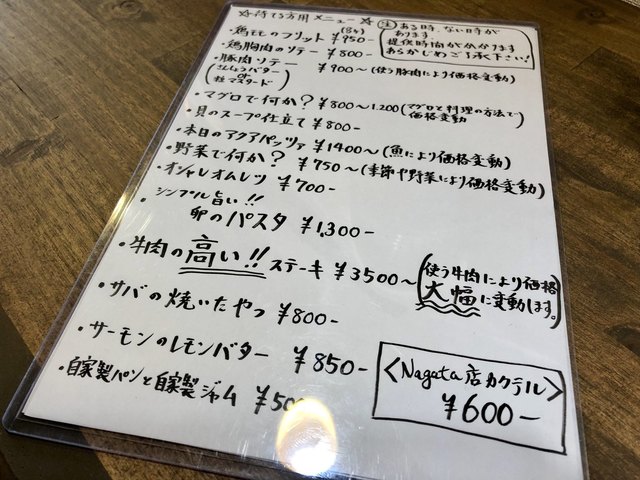 ☆待てる方用メニュー☆
注 ある時、ない時が
あります。
提供時間がかかります
あらかじめご了承下さい!
・鶏モモのフリット (8ケ) ¥950-
・鶏胸肉のソテー ¥800-
・豚肉ソテー ¥900〜(使う豚肉により価格変動)
(さんしょうバター
or
粒マスタード)
・マグロで何か? ¥800〜1.200(マグロと料理の方法で
価格変動)
・貝のスープ仕立て ¥800-
・本日のアクアパッツァ ¥1400〜(魚により価格変動)
・野菜で何か? ¥750〜(季節や野菜により価格変動)
・オシャレオムレツ ¥700-
・シンプル旨い!!
卵のパスタ ¥1,300-
・牛肉の高い!!ステーキ ¥3500〜(使う牛肉により価格
大幅に変動します。)
・サバの焼いたやつ ¥800-
・サーモンのレモンバター ¥850-
・自家製パンと自家製ジャム ¥500
<Nagata店カクテル>
¥600-